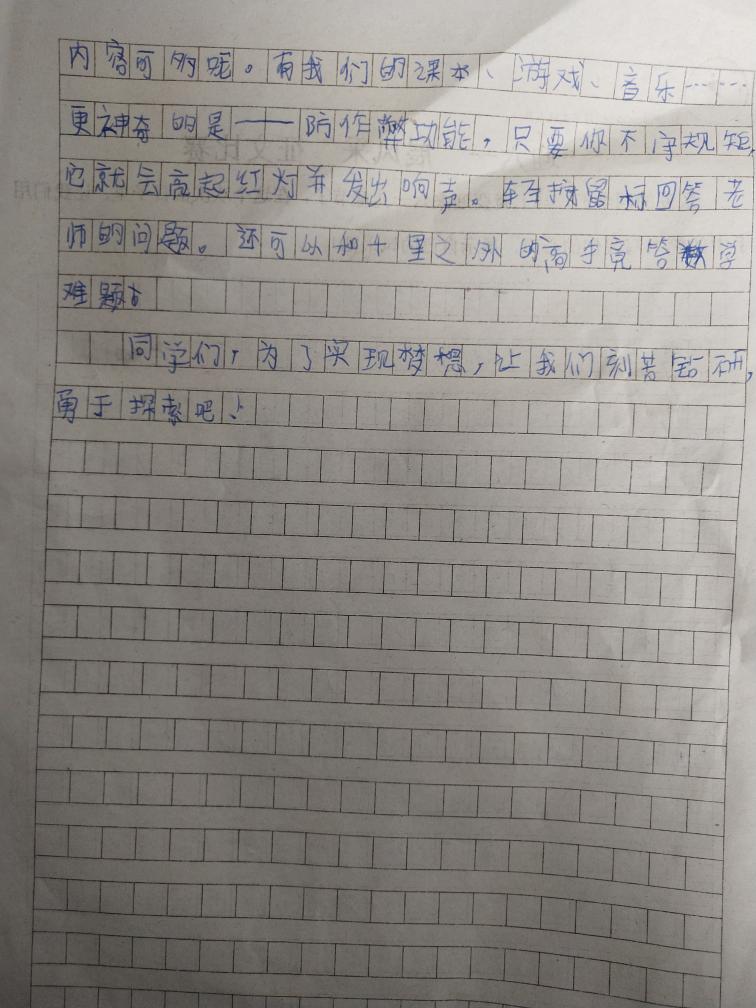 内容可多呢。有我们的课本、游戏、音乐……
更神奇的是——防作弊功能，只要你不守规矩，
它就会亮起红灯并发出响声。轻按鼠标回答老
师的问题。还可以和十里之外的高手竞答数学
难题！
同学们，为了实现梦想，让我们刻苦钻研，
勇于探索吧！